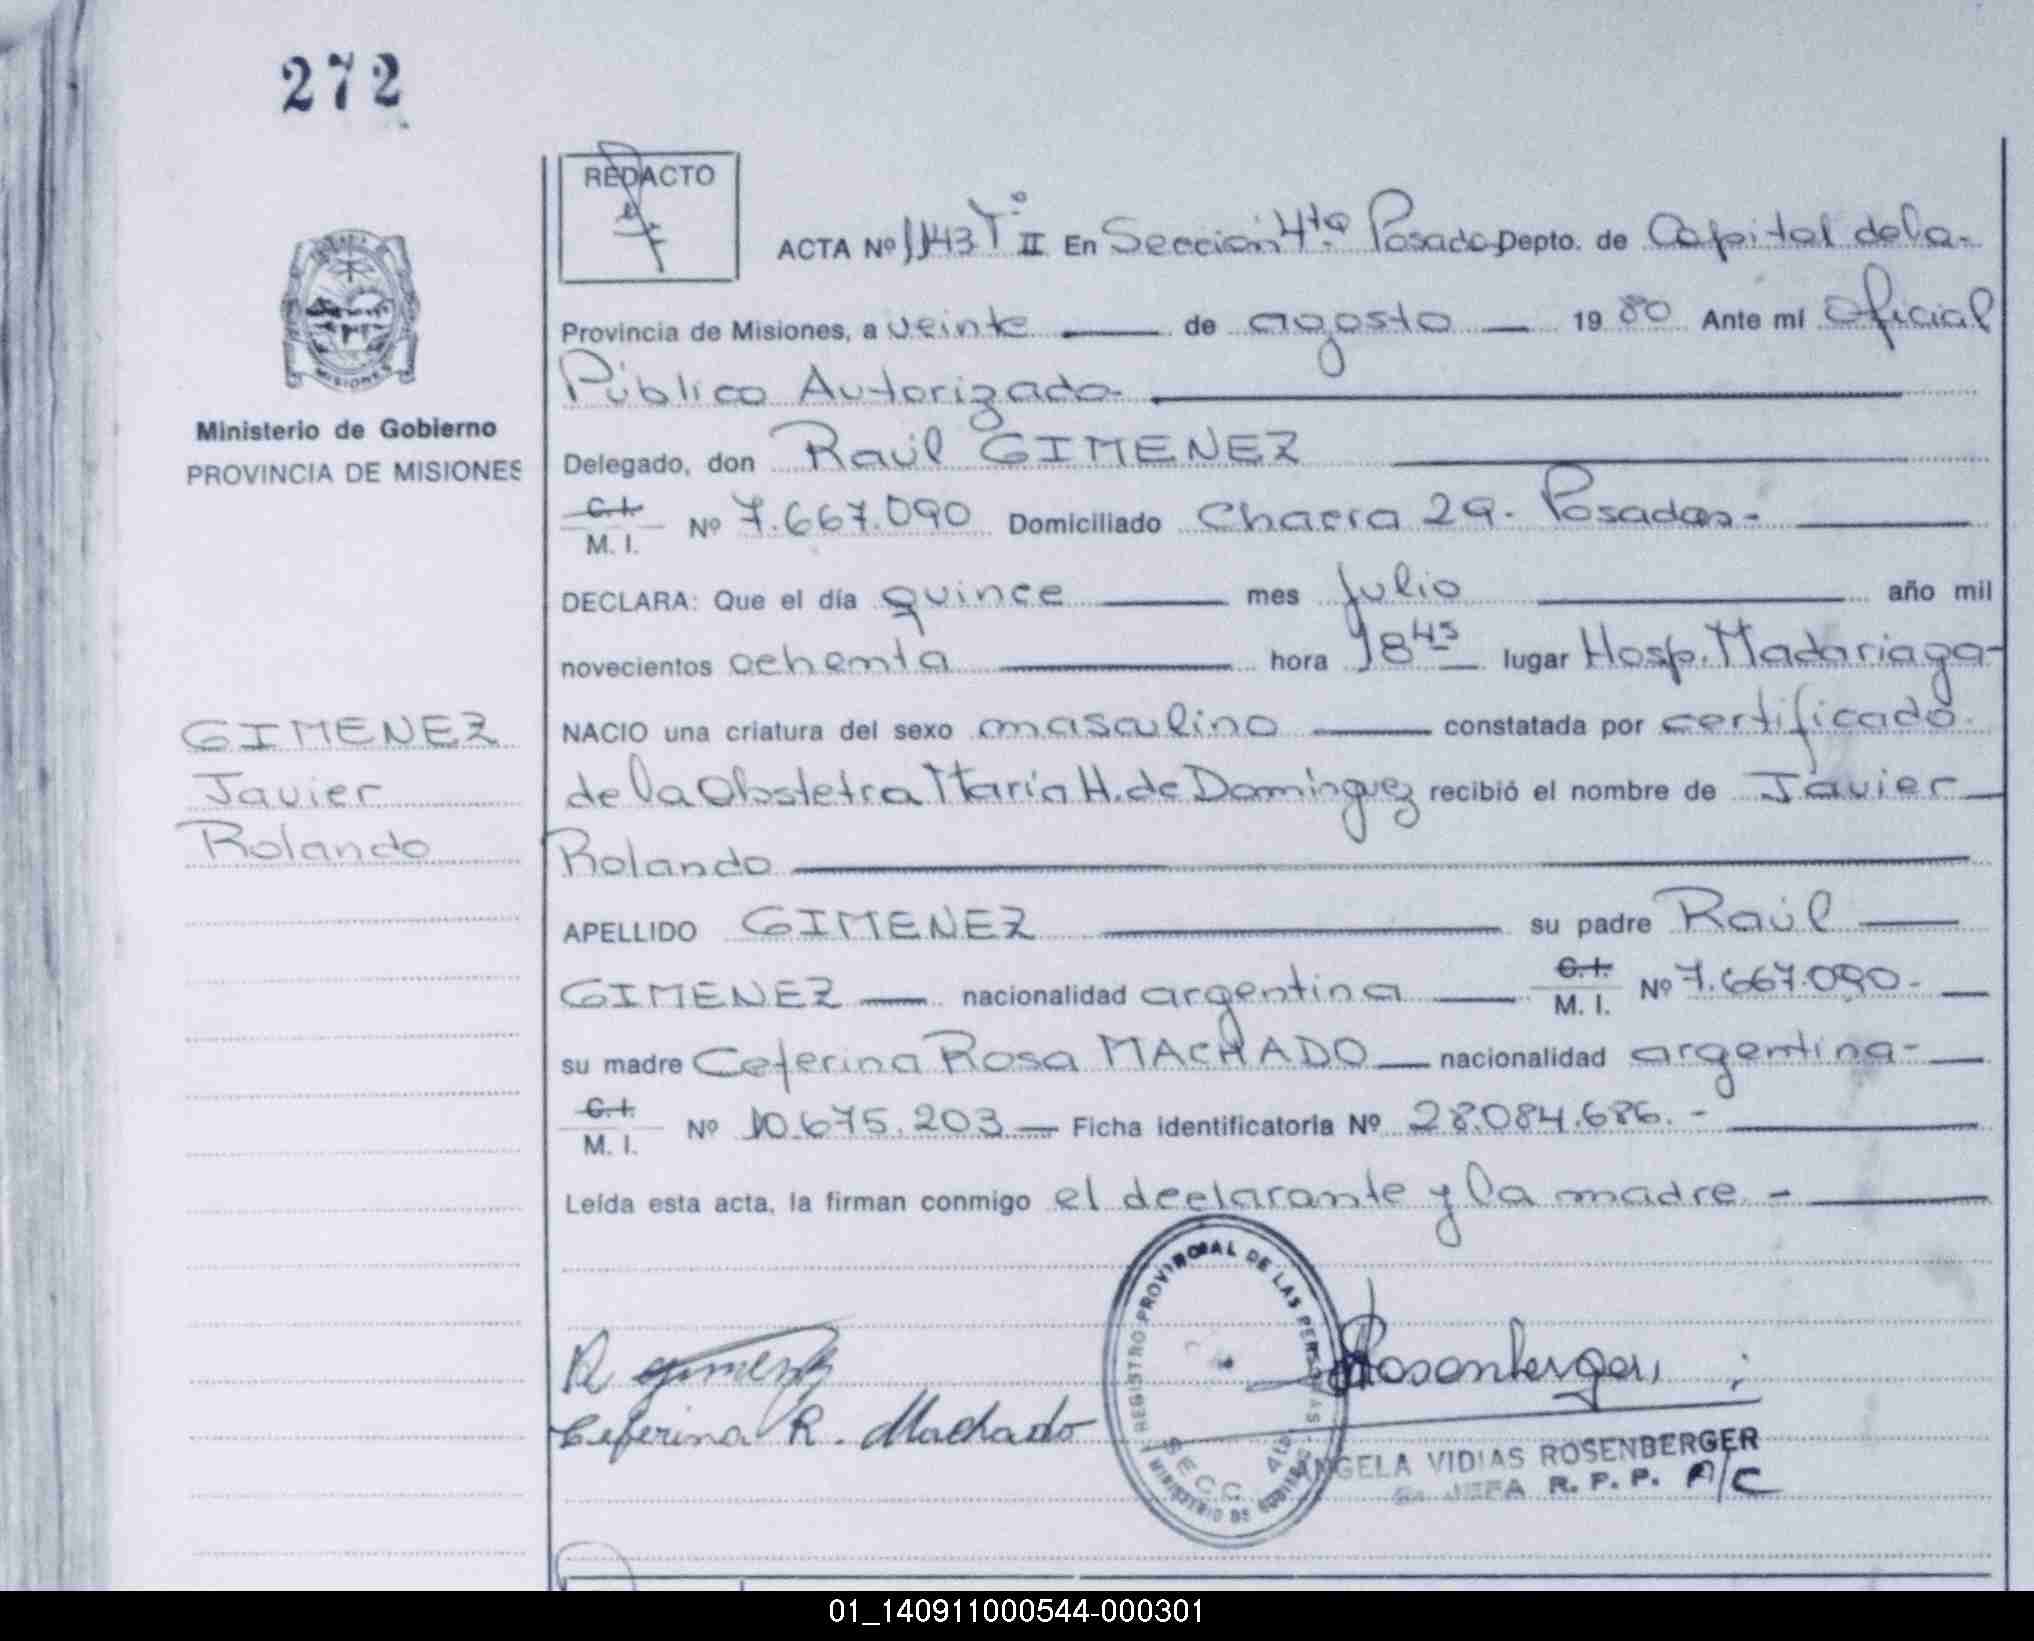 272
REDACTO
ACTA Nº 1143 Tº II En Sección 4ta Posadas Depto. de Capital de la-
Provincia de Misiones, a veinte de agosto 19 80 Ante mí Oficial
Público Autorizado-
MISIONES
Ministerio de Gobierno
PROVINCIA DE MISIONES
Delegado, don Raúl GIMENEZ
C. I.
M. I. Nº 7.667.090 Domiciliado Chacra 29- Posadas-
DECLARA: Que el día quince mes Julio año mil
novecientos ochenta hora 18 45 lugar Hosp. Madariaga-
GIMENEZ
Javier
Rolando
NACIO una criatura del sexo masculino constatada por certificado
de la Obstetra María H. de Domínguez recibió el nombre de Javier
Rolando
APELLIDO GIMENEZ su padre Raúl
GIMENEZ nacionalidad argentina C. I. M. I. Nº 7.667.090-
su madre Ceferina Rosa MACHADO nacionalidad argentina-
C. I.
M. I. Nº 10.675.203 Ficha identificatoria Nº 28.084.686.-
Leída esta acta, la firman conmigo el declarante y la madre -
REGISTRO PROVINCIAL DE LAS PERSONAS
SECC. 4ta
MINISTERIO DE GOBIERNO
R Gimenez
Ceferina R. Machado
Rosenberger
ANGELA VIDIAS ROSENBERGER
JEFA R. P. P. A/C
01_140911000544-000301